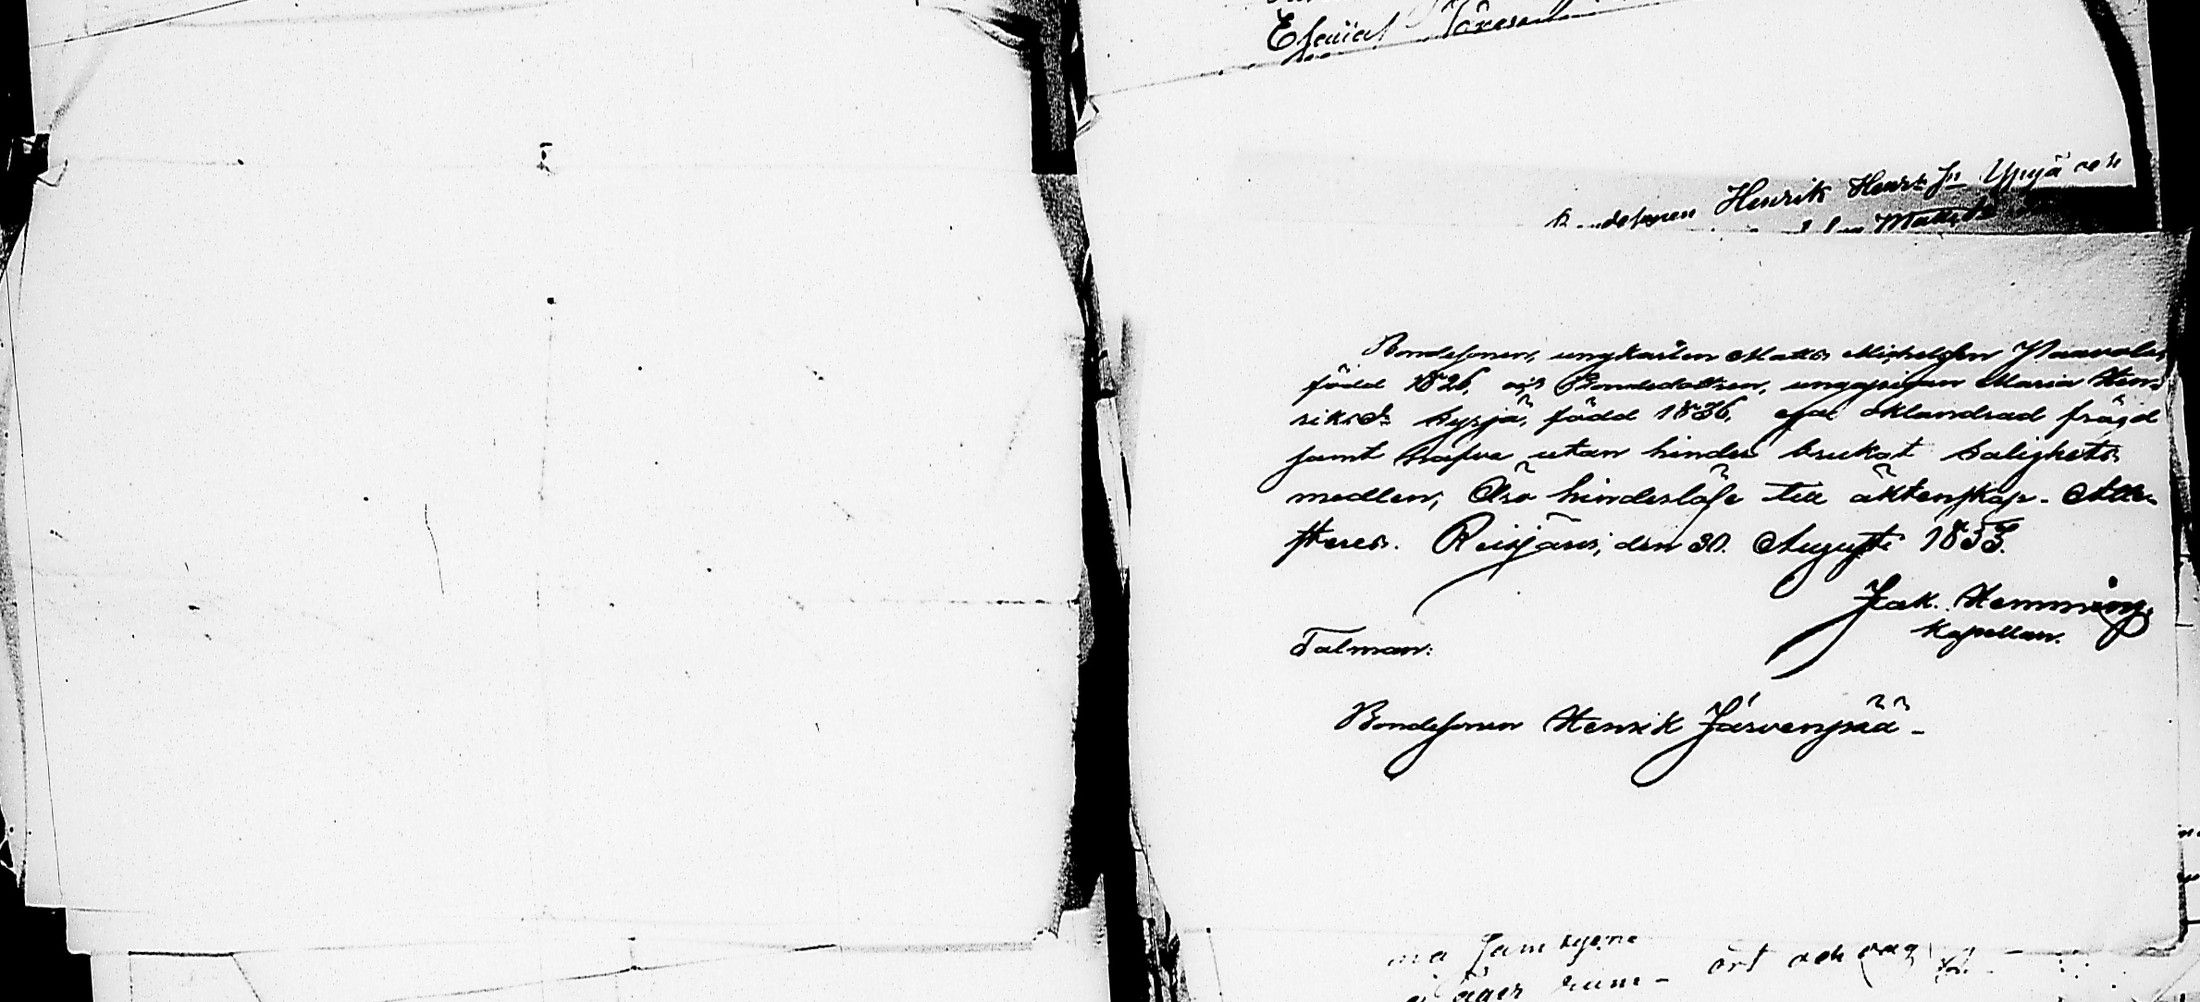 Esaias
Bondesonen Henrik Henrss Yppyä och
Matts
Bondesonen, ungkarlen Matts Michelsson Paavola,
född 1826, och Bondedottren, ungpigan Maria Hen-
riksdr Syrjä, född 1836, ega oklandrad frägd
samt hafva utan hinder brukat salighets
medlen; Äro hinderlöse till äktenskap. Atte-
steres. Reisjärvi, den 30. Augusti 1855.
Jak. Hemming,
Kapellan.
Talman:
Bondesonen Henrik Järvenpää -
ort och dag
äger rum -